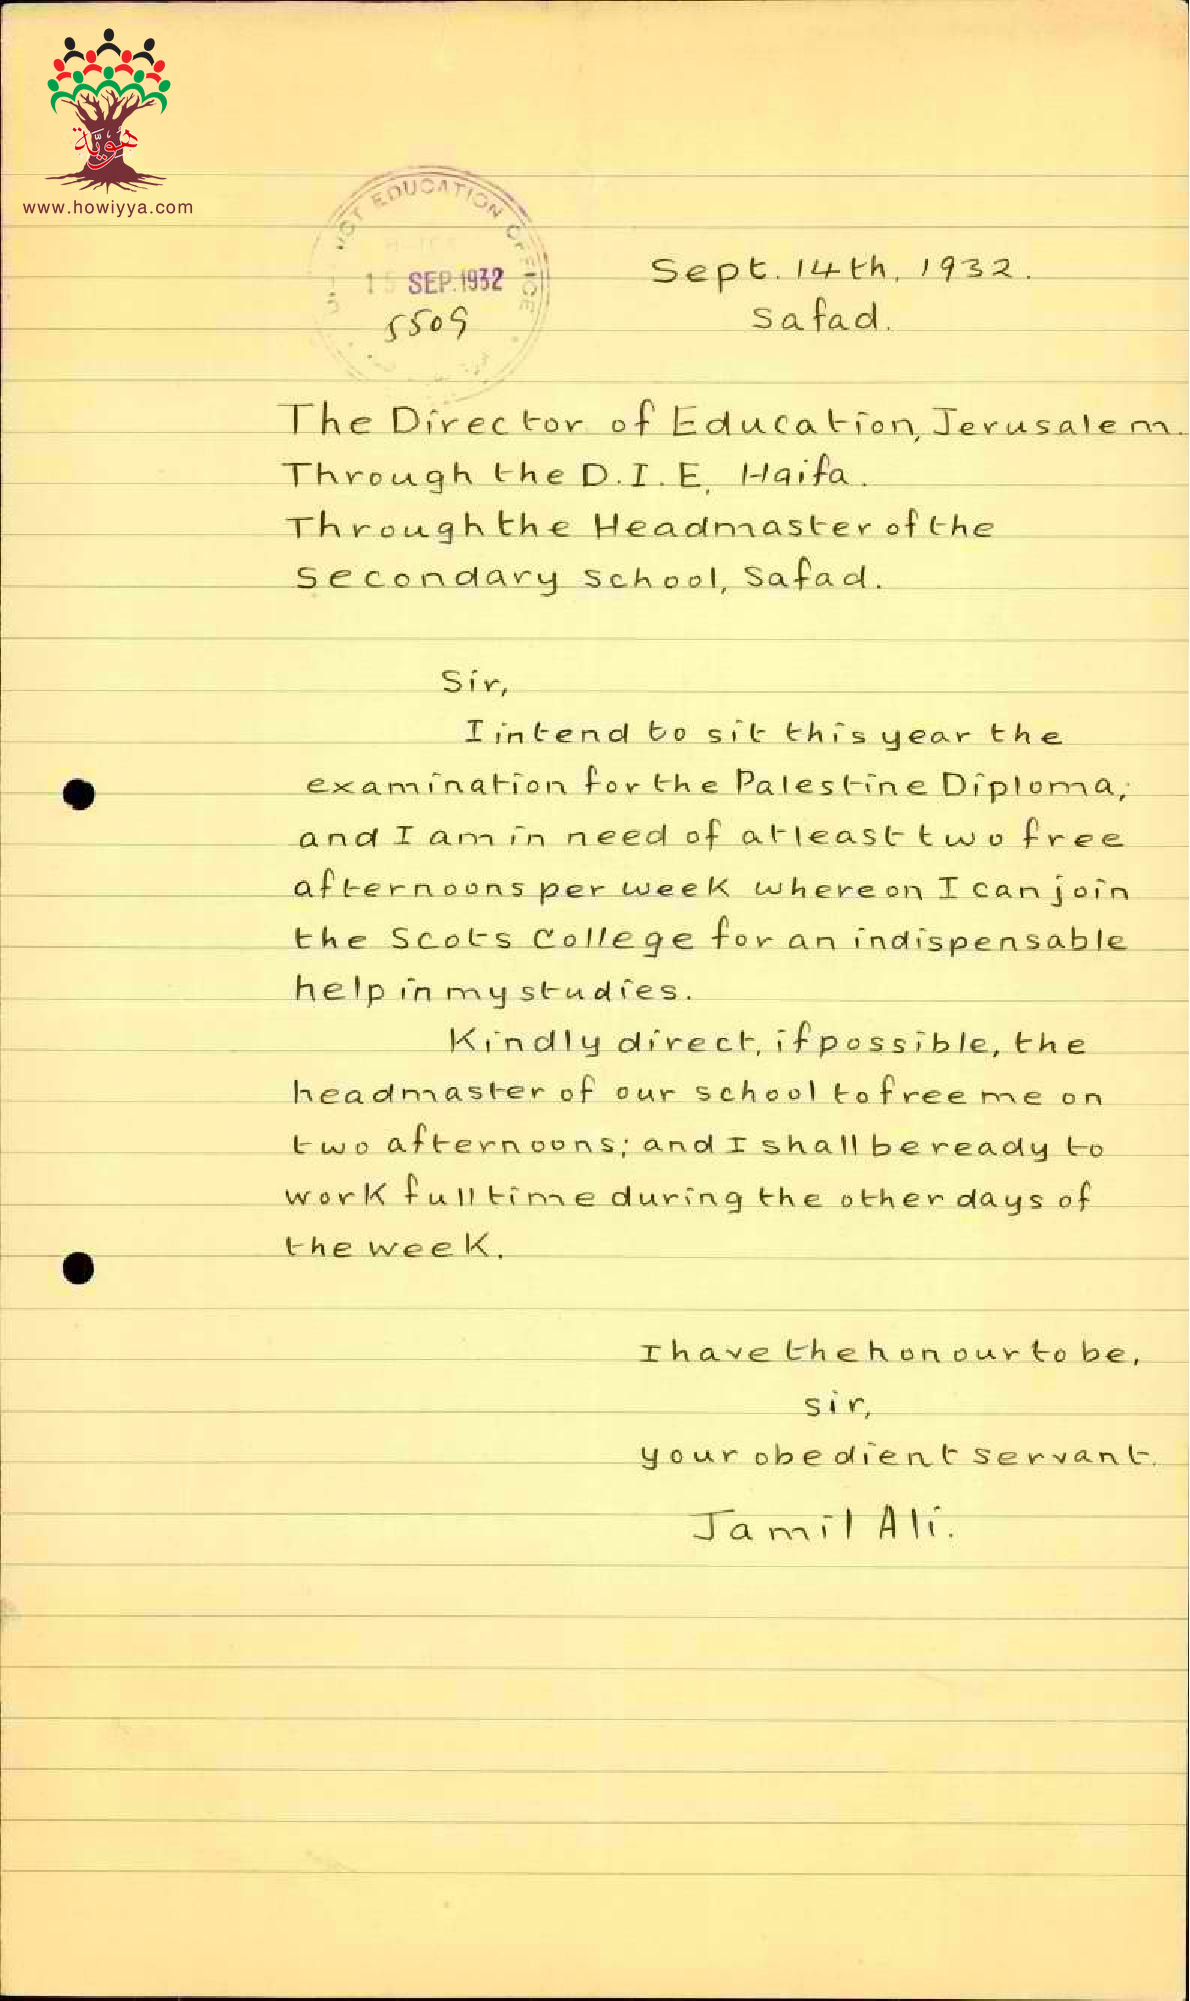 هوية
www.howiyya.com
EDUCATION OFFICE
15 SEP. 1932
5509
Sept. 14th, 1932.
Safad.
The Director of Education, Jerusalem.
Through the D.I.E, Haifa.
Through the Headmaster of the
Secondary School, Safad.
Sir,
I intend to sit this year the
examination for the Palestine Diploma,
and I am in need of at least two free
afternoons per week whereon I can join
the Scots College for an indispensable
help in my studies.
Kindly direct, if possible, the
headmaster of our school to free me on
two afternoons; and I shall be ready to
work full time during the other days of
the week.
I have the honour to be,
sir,
your obedient servant.
Jamil Ali.